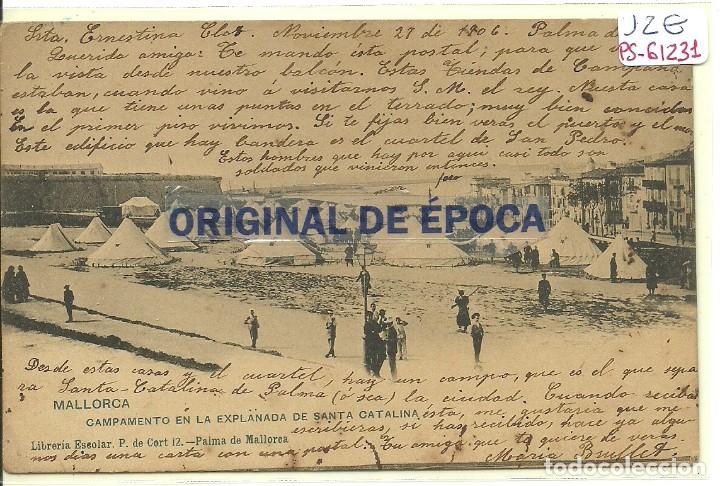 JZG
PS-61231
Srta. Ernestina Clot. Noviembre 27 de 1906. Palma de
Querida amiga: Te mando ésta postal; para que
la vista desde nuestro balcón. Estas Tiendas de Campaña
estaban, cuando vino á visitarnos S. M. el rey. Nuesta casa
es la que tiene unas puntas en el terrado; muy bien conocidas
En el primer piso vivimos. Si te fijas bien verás el puerto y el mar
Este edificio que hay bandera es el cuartel de San Pedro.
Estos hombres que hay por aquí casi todo son
soldados que vinieron entonces.
mar
faro
ORIGINAL DE ÉPOCA
Desde estas casas y el cuartel, hay un campo, que es el que sepa
ra Santa-Catalina de Palma (ó sea) la ciudad. Cuando recibas
MALLORCA
CAMPAMENTO EN LA EXPLANADA DE SANTA CATALINA
ésta, me gustaria que me
escribieras, si has recibido, hace ya algu-
Librería Escolar. P. de Cort 12.—Palma de Mallorca
nos dias una carta con una postal. Tu amiga que te quiere de veras.
María
todocoleccion